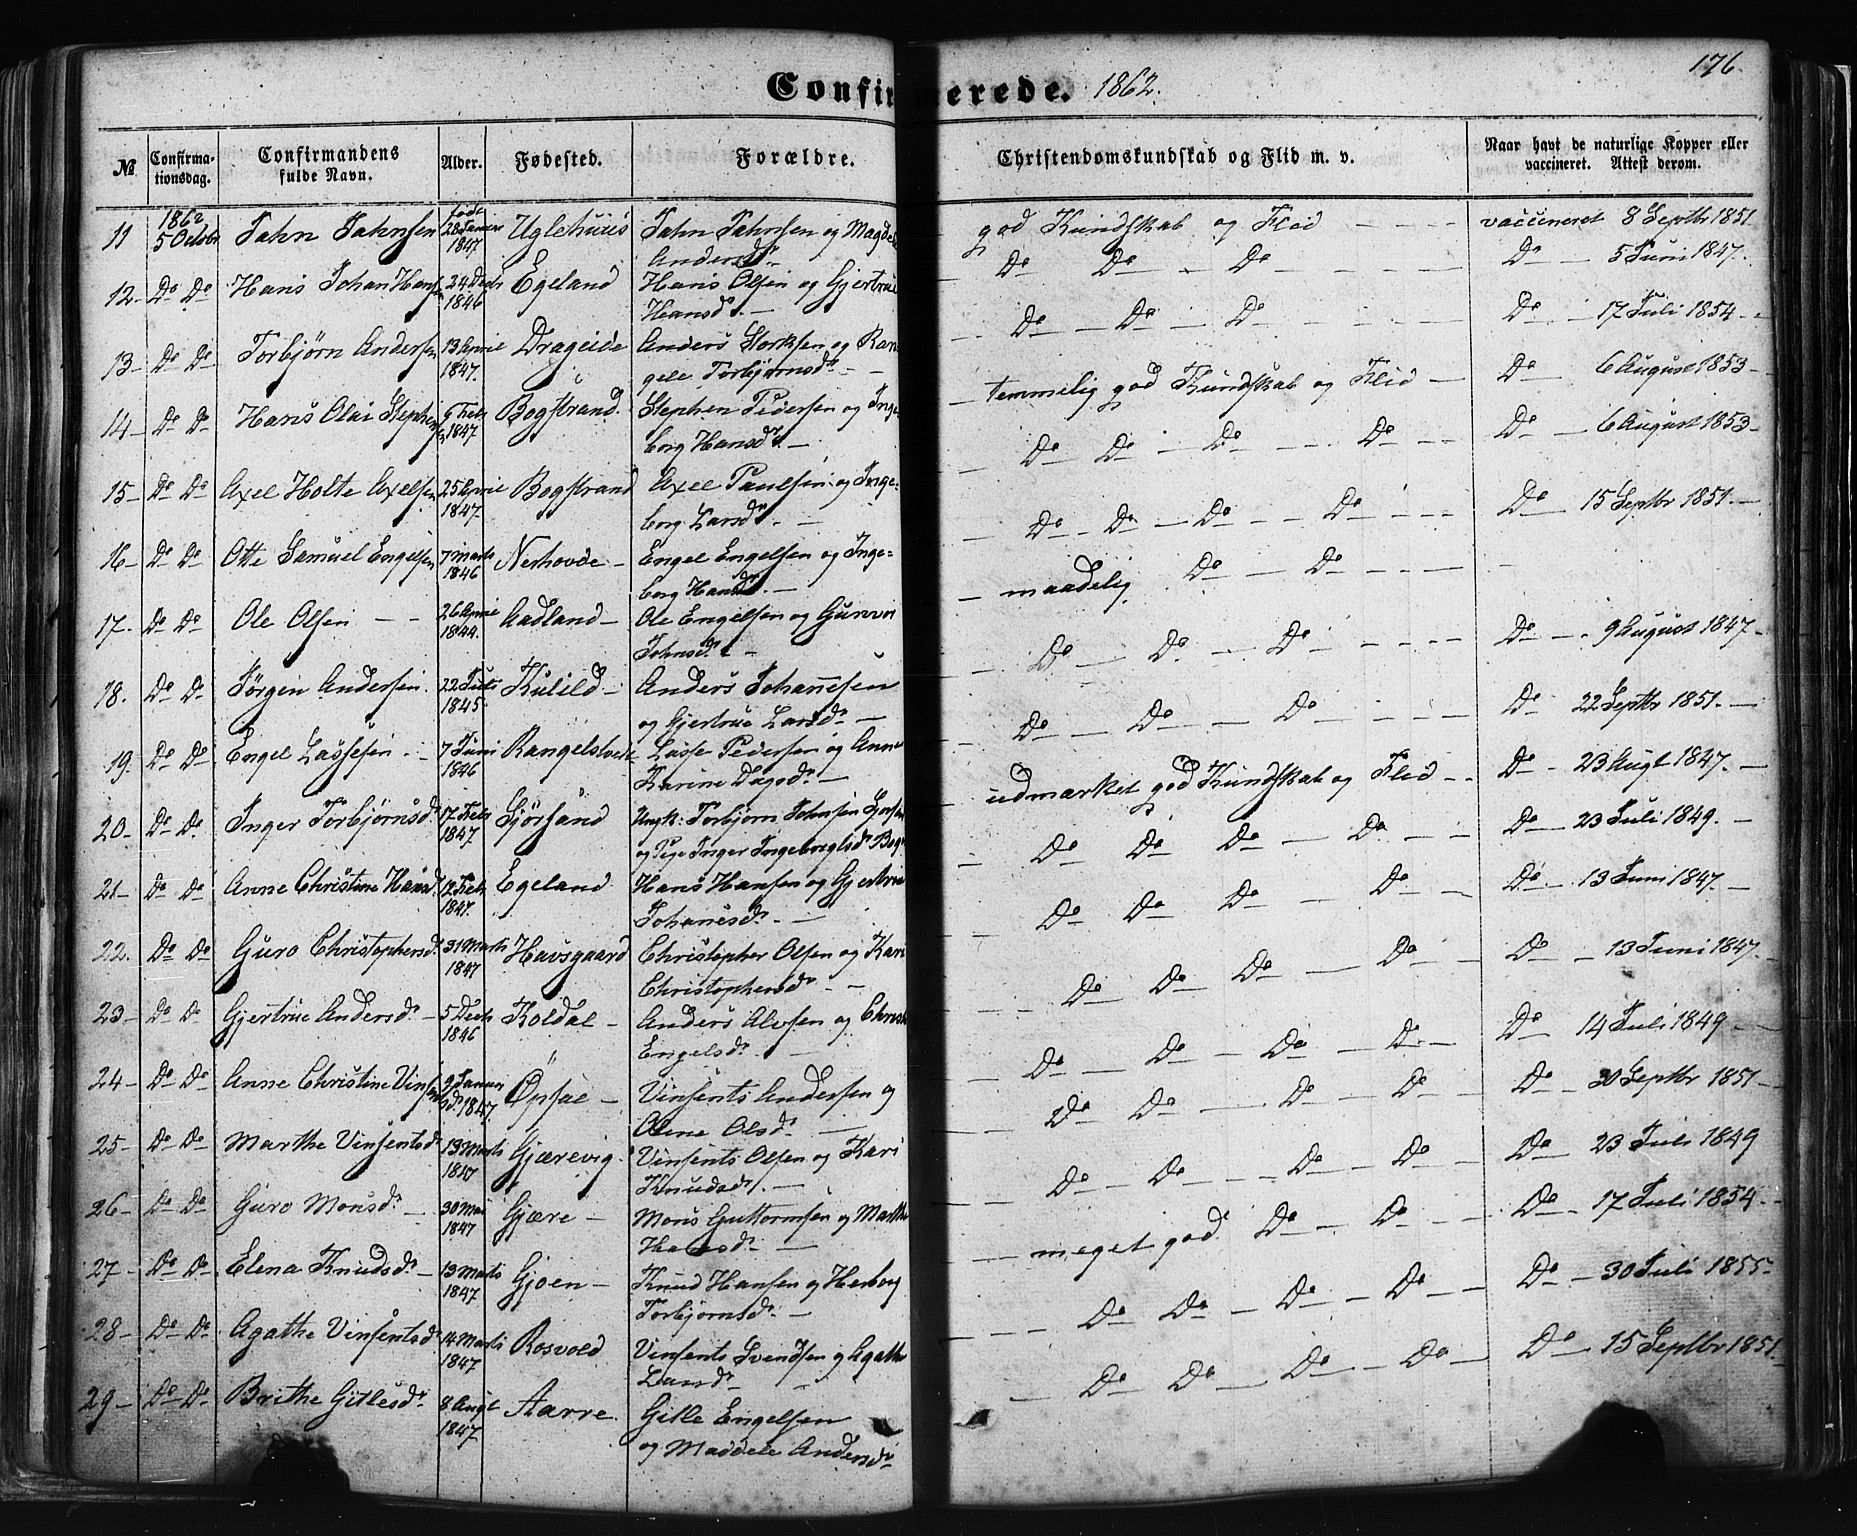 176.
Confirmerede. 1862.
№ Confirmationsdag. Confirmandens fulde Navn. Alder. Fødested. Forældre. Christendomskundskab og Flid m. v. Naar havt de naturlige Kopper eller vaccineret. Attest derom.
11 1862 5 Octobr Jahn Jahnsen født 28 Januar 1847 Uglehuus Jahn Jahnsen og Magdele Andersdr. god Kundskab og Flid vaccineret 8 Septbr 1851.
12 Do Do Hans Johan Hansen 24 Decbr 1846 Egeland Hans Olsen og Gjertrue Hansdr. Do Do Do Do 5 Juni 1847.
13 Do Do Torbjørn Andersen 13 April 1847. Drageide Anders Larsen og Rangele Torbjørnsdr. Do Do Do Do 17 Juli 1854
14 Do Do Hans Olai Stephensen Febr 1847. Bogstrand. Stephen Pedersen og Ingeborg Hansdr. temmelig god Kundskab og Flid Do 6 August 1853
15 Do Do Axel Holte Axelsen 25 April 1847. Bogstrand Axel Paulsen og Ingeborg Larsdr. Do Do Do Do Do 6 August 1853
16 Do Do Otte Samuel Engelsen 7 Marts 1846 Nerhovde Engel Engelsen og Ingeborg Hansdr. Do Do Do Do Do 15 Septbr 1851.
17. Do Do Ole Olsen 26 April 1844. Aadland Ole Engelsen og Gunvor Johnsdr. maadelig Do Do
18. Do Do Jørgen Andersen 22 Juli 1845 Kulild Anders Johannesen og Gjertrue Larsdr. Do Do Do Do 9 August 1847
19. Do Do Engel Lassesen 7 Juni 1846 Rangelstvedt Lasse Pedersen og Anne Karine Dagsdr. Do Do Do Do 22 Septbr 1851.
20 Do Do Inger Torbjørnsd. 17 Febr 1847 Sjørsand Ungk: Torbjørn Johnsen og Pige Inger Ingebrigtsdr. udmærket god Kundskab og Flid Do 23 Augt 1847.
21 Do Do Anne Christine Hansd. 12 Febr 1847. Egeland Hans Hansen og Gjertrue Johannesdr. Do Do Do Do Do 23 Juli 1849.
22. Do Do Guro Christophersd. 31 Marts 1847 Havsgaard Christopher Olsen og Kari Christophersdr. Do Do Do Do Do 13 Juni 1847.
23 Do Do Gjertrue Andersdr. 5 Decbr 1846 Koldal Anders Alvsen og Engelsdr. Do Do Do Do Do 13 Juni 1847.
24 Do Do Anne Christine Vinsentsdr. 9 Januar 1847 Opsal Vinsents Andersen og Olene Olsdr. Do Do Do Do Do 14 Juli 1849
25 Do Do Marthe Vinsentsdr 19 Marts 1847 Gjærevig Vinsents Olsen og Kari Knudsdr. Do Do Do Do Do 30 Septbr 1851
26 Do Do Guro Monsdr. 30 Mai 1847 Gjære Mons Guttormsen og Marthe Hansdr. Do Do Do Do Do 23 Juli 1849
27 Do Do Elena Knudsdr. 13 Marts 1847 Gjøen Knud Hansen og Herborg Torbjørnsdr. meget god. Do Do Do 17 Juli 1854
28 Do Do Agathe Vinsentsdr 14 Marts 1847 Rosvold Vinsents Svendsen og Agathe Larsdr. Do Do Do Do Do 30 Juli 1855
29 Do Do Brithe Gitlesdr. 8 Augt 1847 Aarre. Gitle Engelsen og Maddele Andersdr Do Do Do Do Do 15 Septbr 1851.